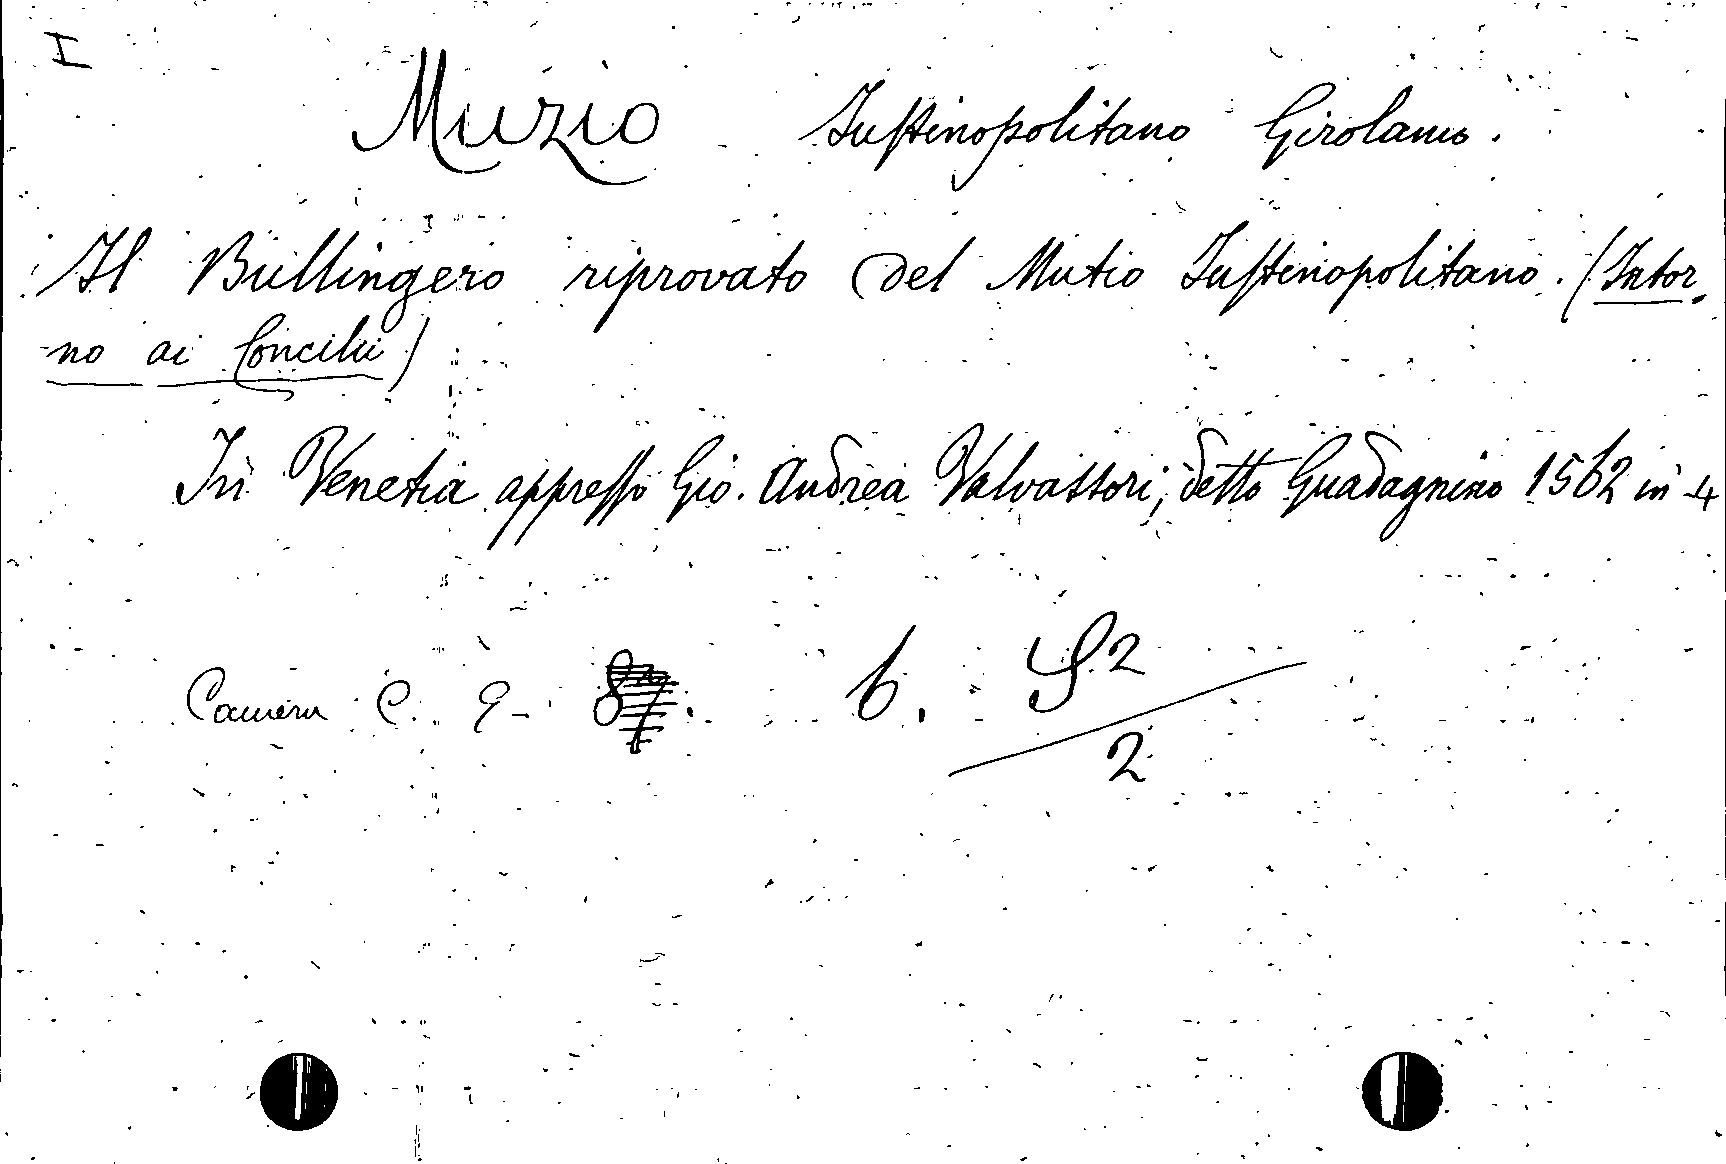 I
Muzio Iustinopolitano Girolamo.
Il Bullingero riprovato del Mutio Iustinopolitano. (Intor-
no ai Concilii)
In Venetia appresso Gio. Andrea Valvassori, detto Guadagnino 1562 in 4
Camera C. 9 - b. 92
2